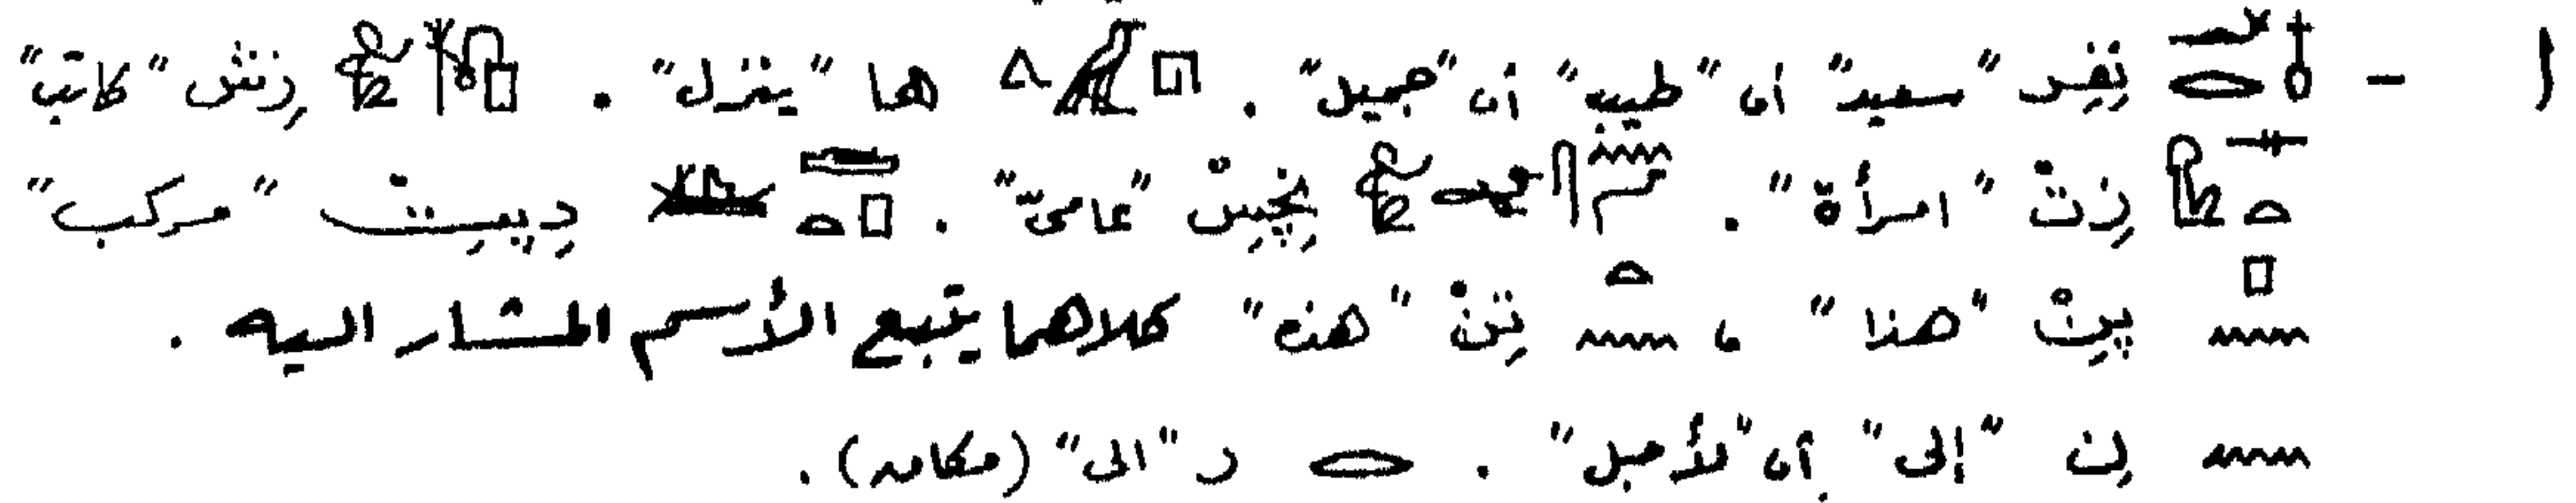 ١ - 𓄤𓆑𓂋 نِفِر "سعيد" أو "طيب" أو "جميل". 𓉔𓅓𓂻 ها "ينزل". "كاتب"
زِتْ "امرأة". "عامىّ". دِپِتْ "مركب"
𓊪𓈖 پِنْ "هذا"، 𓏏𓈖 تِنْ "هذه" كلاهما يتبع الأسم المشار اليه.
𓈖 نِ "إلى" أو "لأجل". 𓂋 ر "الى" (مكان).